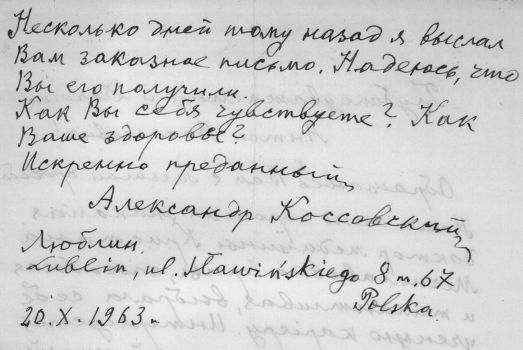 Несколько дней тому назад я выслал
Вам заказное письмо. Надеюсь, что
Вы его получили.
Как Вы себя чувствуете? Как
Ваше здоровье?
Искренно преданный,
Александр Коссовский
Люблин.
Lublin, ul. Sławińskiego 8 m. 67
Polska.
20.X.1963 г.